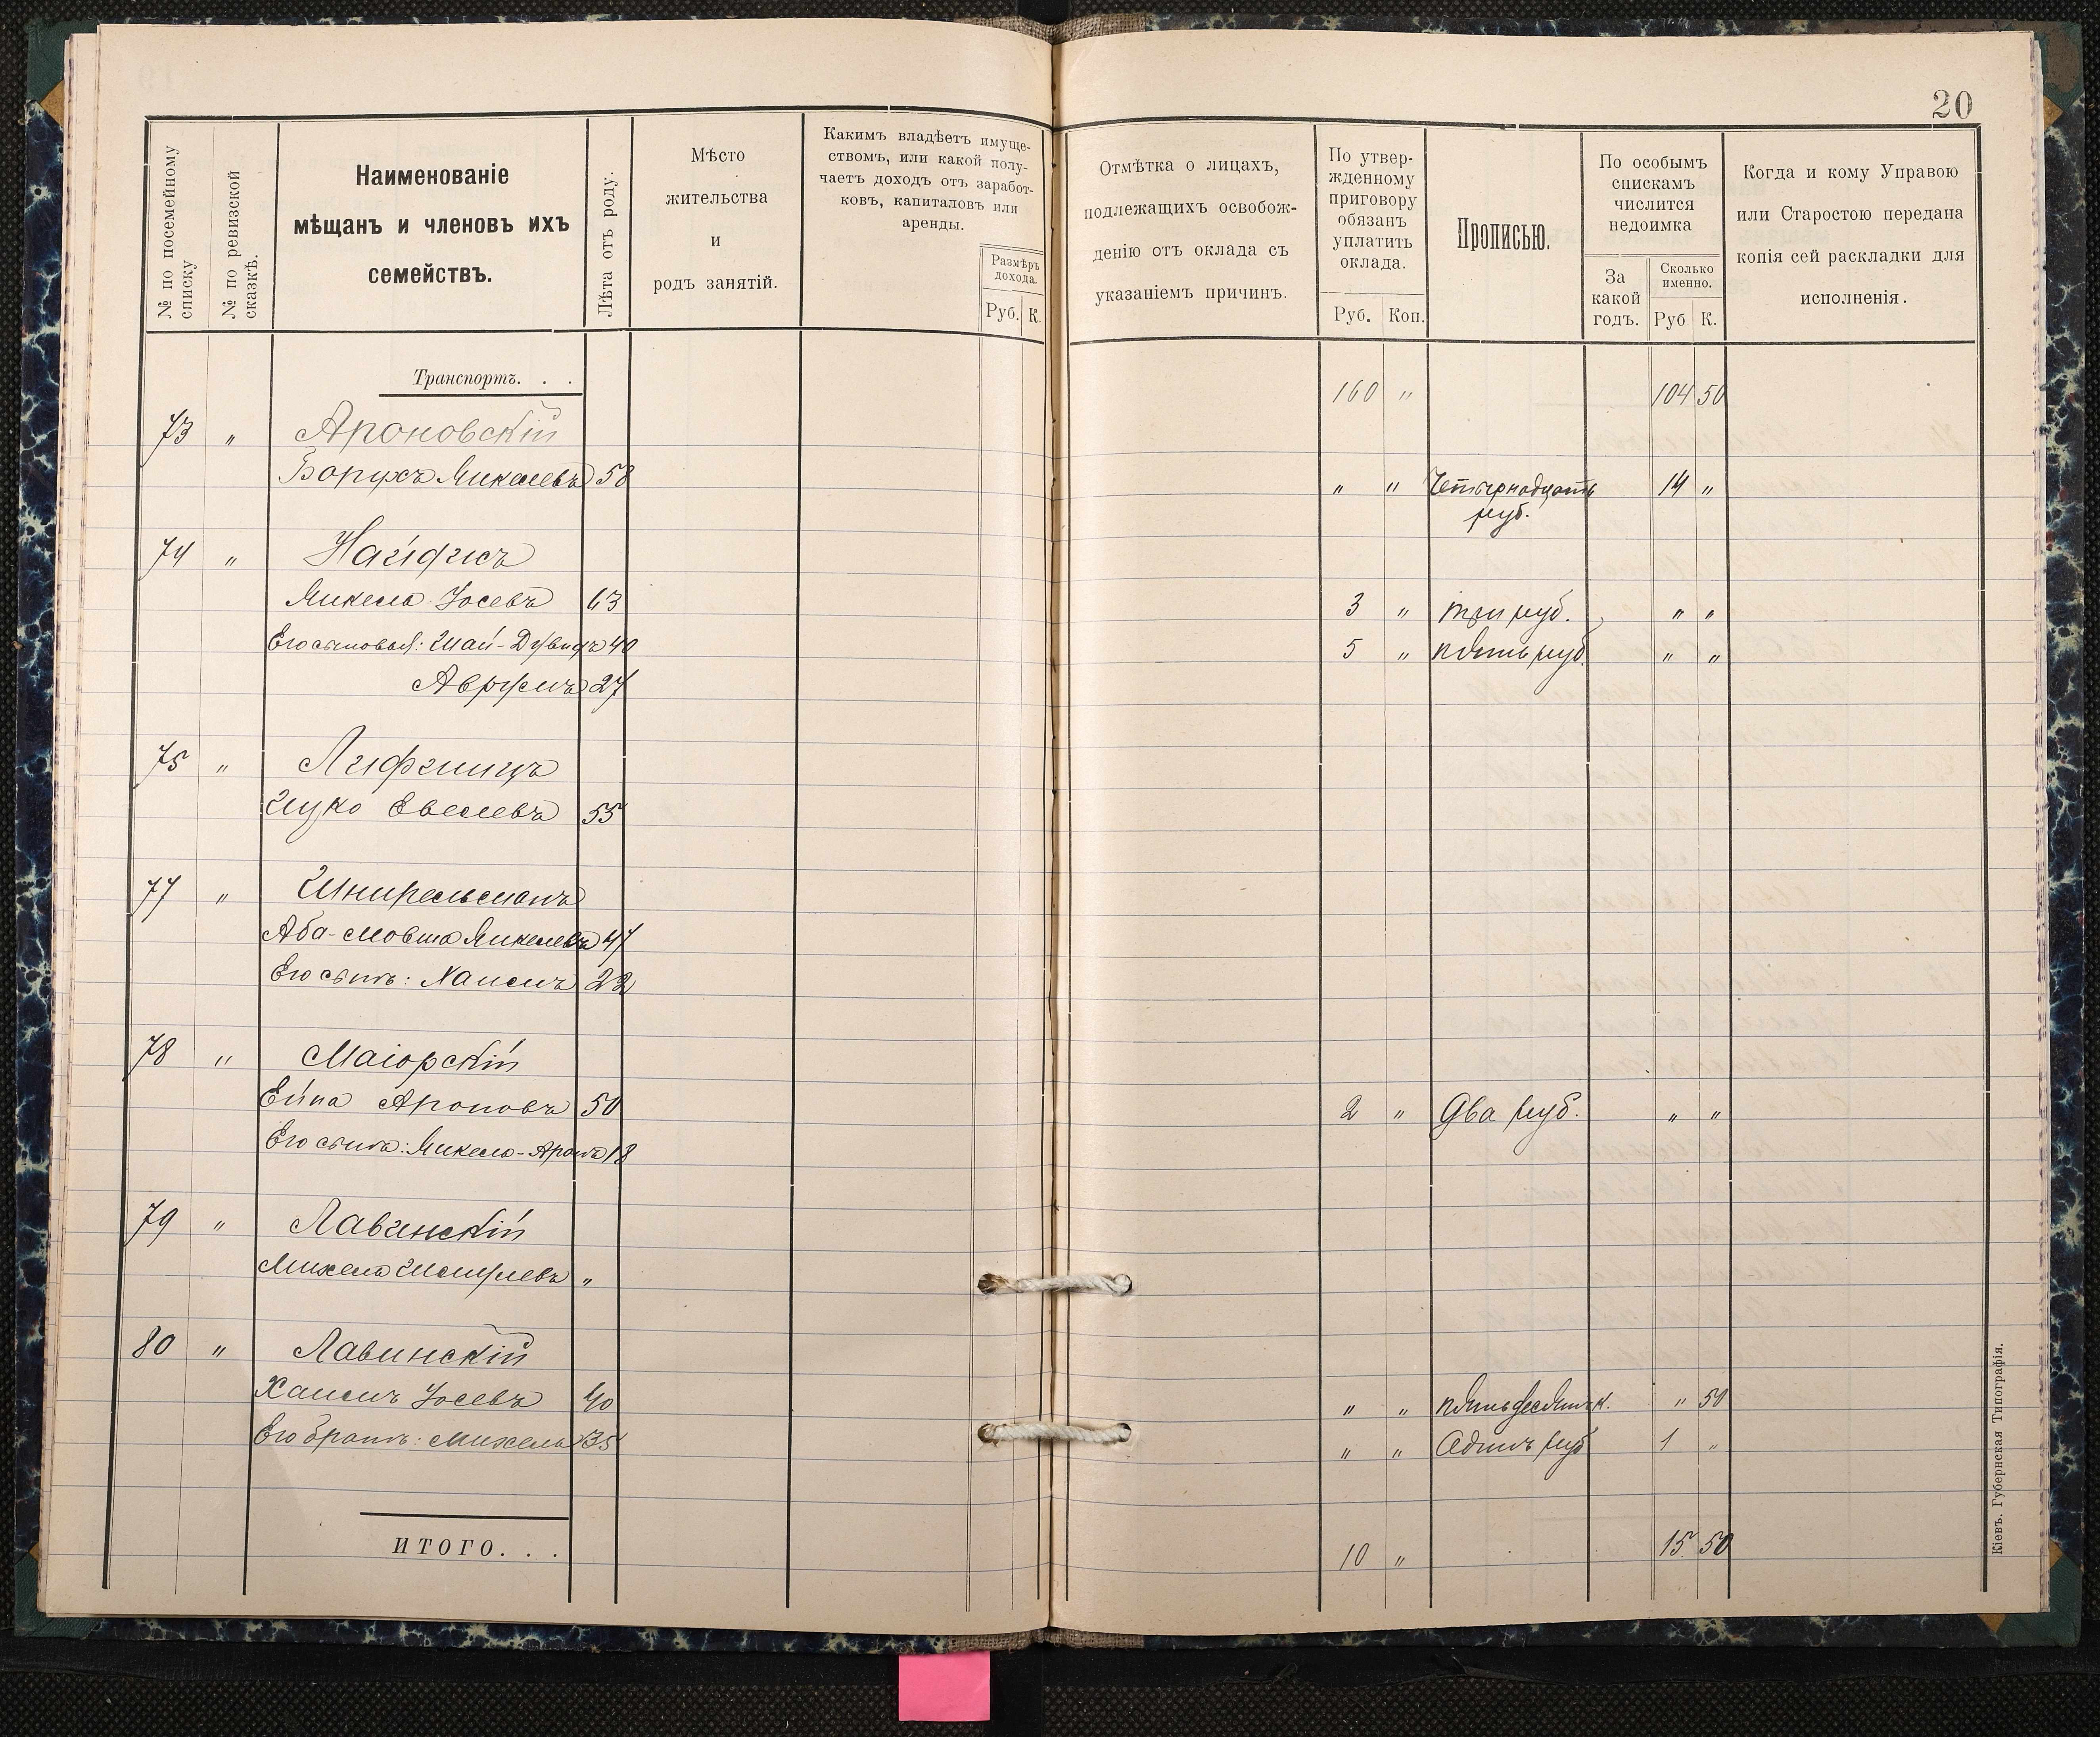 20
№ по посемейному списку
№ по ревизской сказкѣ.
Наименованіе
мѣщанъ и членовъ ихъ
семействъ.
Лѣта отъ роду.
Мѣсто
жительства
и
родъ занятій.
Какимъ владѣетъ имуще-
ствомъ, или какой полу-
чаетъ доходъ отъ заработ-
ковъ, капиталовъ или
аренды.
Размѣръ
дохода.
Руб. К.
Отмѣтка о лицахъ,
подлежащихъ освобож-
денію отъ оклада съ
указаніемъ причинъ.
По утвер-
жденному
приговору
обязанъ
уплатить
оклада.
Руб. Коп.
Прописью.
По особымъ
спискамъ
числится
недоимка
За
какой
годъ.
Сколько
именно.
Руб К.
Когда и кому Управою
или Старостою передана
копія сей раскладки для
исполненія.
Транспортъ. . . 160 " 104 50
73 " Ароновскій
Борухъ Микелевъ 58 " " Четырнадцать 14 "
руб.
74 " Найдисъ
Микель Іосевъ 63 3 " три руб. " "
Его сыновья: Шай-Дувидъ 40 5 " пять руб. " "
Аврумъ 27
75 " Лифшицъ
Ицко Евелевъ 55
77 " Шнирельманъ
Аба-Мовша Микелевъ 47
Его сынъ: Хаимъ 22
78 " Маіорскій
Ейна Ароновъ 50 2 " Два руб. " "
Его сынъ: Микель-Аронъ 18
79 " Лавинскій
Михель Шмулевъ "
80 " Лавинскій
Хаимъ Іосевъ 40 " " пятьдесятъ к. " 50
Его братъ: Михель 35 " " Одинъ руб 1 "
ИТОГО. . . 10 " 15 50
Кіевъ. Губернская Типографія.